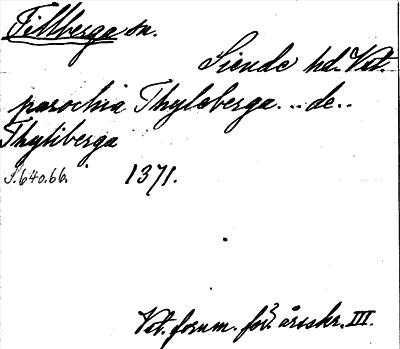 Tillberga sn.
Siende hd. Vst.
parochia Thyleberga... de..
Thyliberga
S. 640.66. 1371.
Vst. fornm. för. årsskr. III.